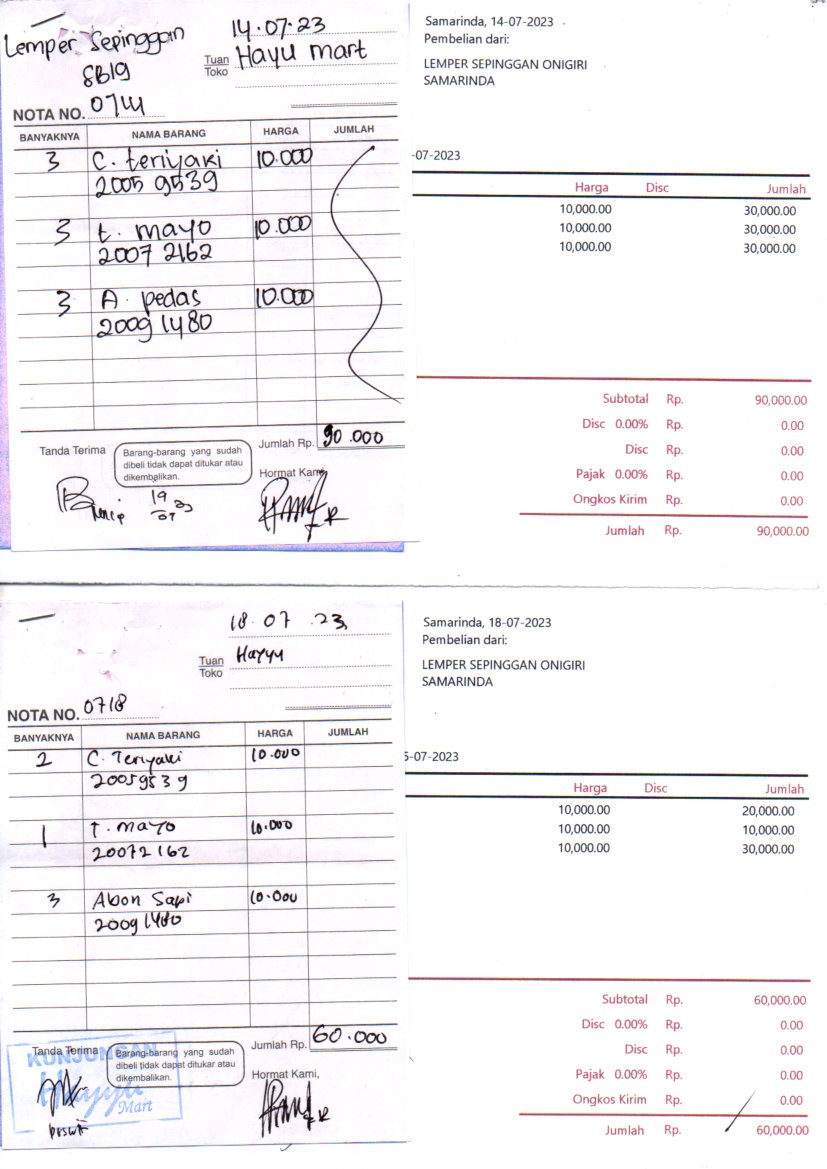 Lemper Sepinggan
SB19
14.07.23
Tuan
Toko
Hayu mart
NOTA NO. 0714
BANYAKNYA NAMA BARANG HARGA JUMLAH
3 C. teriyaki 10.000
2005 9539
3 t. mayo 10.000
2007 2162
3 A. pedas 10.000
2009 1480
Tanda Terima
Barang-barang yang sudah
dibeli tidak dapat ditukar atau
dikembalikan.
Jumlah Rp. 90.000
Hormat Kami,
Samarinda, 14-07-2023
Pembelian dari:
LEMPER SEPINGGAN ONIGIRI
SAMARINDA
-07-2023
Harga Disc Jumlah
10,000.00 30,000.00
10,000.00 30,000.00
10,000.00 30,000.00
Subtotal Rp. 90,000.00
Disc 0.00% Rp. 0.00
Disc Rp. 0.00
Pajak 0.00% Rp. 0.00
Ongkos Kirim Rp. 0.00
Jumlah Rp. 90,000.00
18.07.23
Tuan
Toko
Hayyu
NOTA NO. 0718
BANYAKNYA NAMA BARANG HARGA JUMLAH
2 C. Teriyaki 10.000
20059539
1 T. mayo 10.000
20072162
3 Abon Sapi 10.000
20091480
Tanda Terima
Barang-barang yang sudah
dibeli tidak dapat ditukar atau
dikembalikan.
Jumlah Rp. 60.000
Hormat Kami,
KUNJUNGAN
Hayyu
Mart
Samarinda, 18-07-2023
Pembelian dari:
LEMPER SEPINGGAN ONIGIRI
SAMARINDA
5-07-2023
Harga Disc Jumlah
10,000.00 20,000.00
10,000.00 10,000.00
10,000.00 30,000.00
Subtotal Rp. 60,000.00
Disc 0.00% Rp. 0.00
Disc Rp. 0.00
Pajak 0.00% Rp. 0.00
Ongkos Kirim Rp. 0.00
Jumlah Rp. 60,000.00